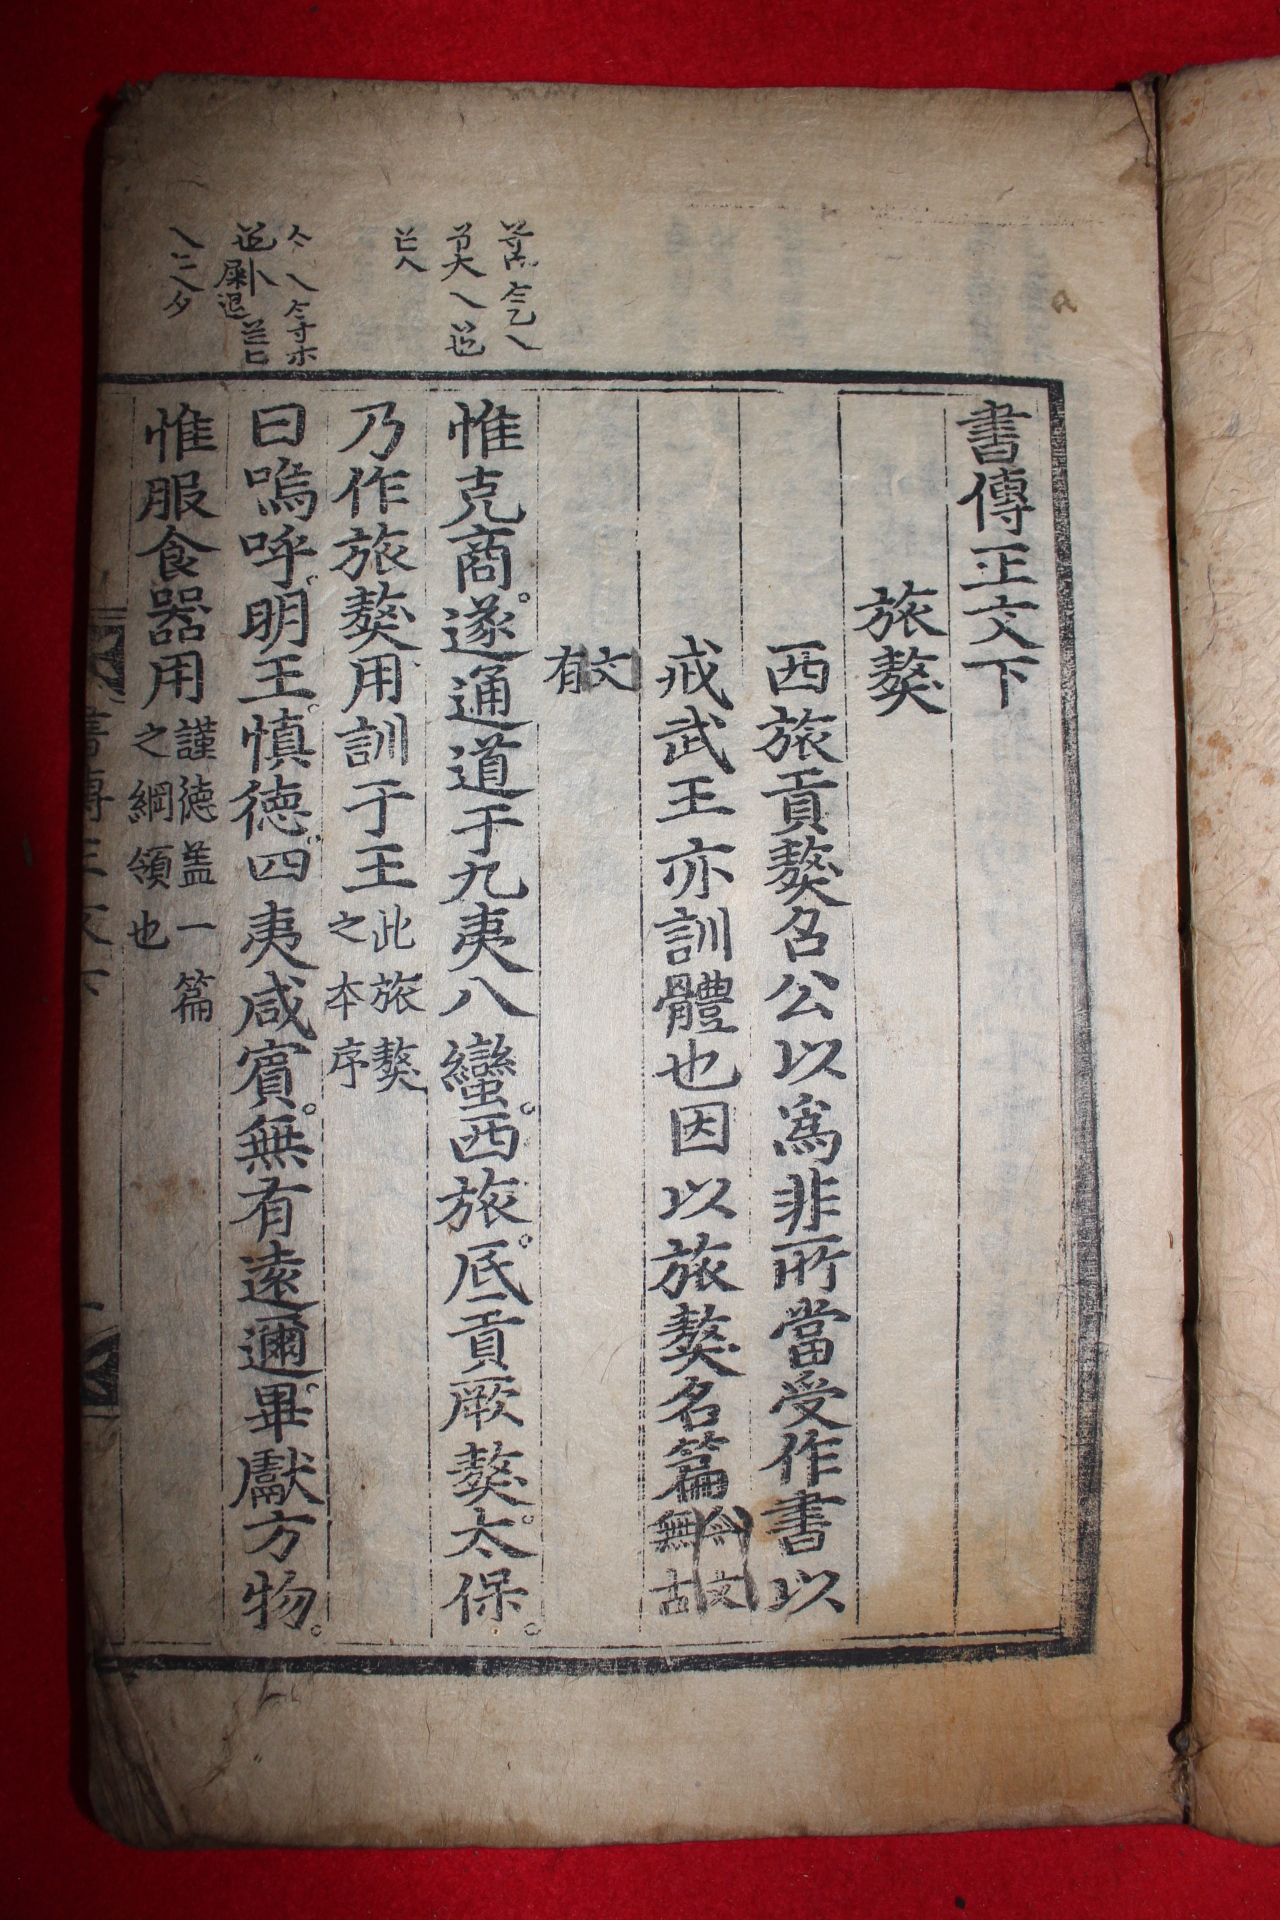 書傳正文下
旅獒
西旅貢獒召公以爲非所當受作書以
戒武王亦訓體也因以旅獒名篇今文
無古
文
有
惟克商遂通道于九夷八蠻西旅底貢厥獒太保
乃作旅獒用訓于王此旅獒
之本序
曰嗚呼明王愼德四夷咸賓無有遠邇畢獻方物
惟服食器用謹德蓋一篇
之綱領也
書傳正文下